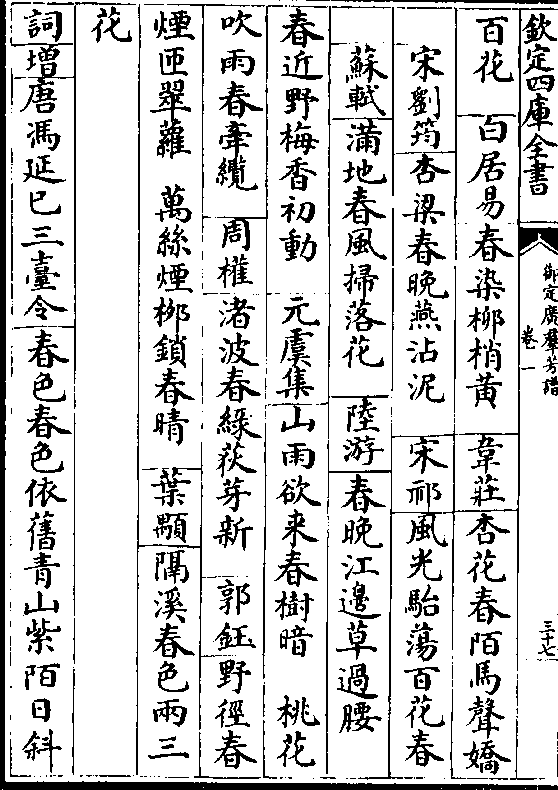 欽定四庫全書
御定廣羣芳譜
卷一
三十七
百花　白居易春染柳梢黄　韋莊杏花春陌馬聲嬌
宋劉筠杏梁春晚燕沾泥　宋祁風光駘蕩百花春
蘇軾滿地春風掃落花　陸游春晚江邊草過腰
春近野梅香初動　元虞集山雨欲来春樹暗　桃花
吹雨春牽纜　周權渚波春綠荻芽新　郭鈺野徑春
煙匝翠蘿　萬絲煙栁鎖春晴　葉顒隔溪春色兩三
花
詞增唐馮延巳三臺令春色春色依舊青山紫陌日斜